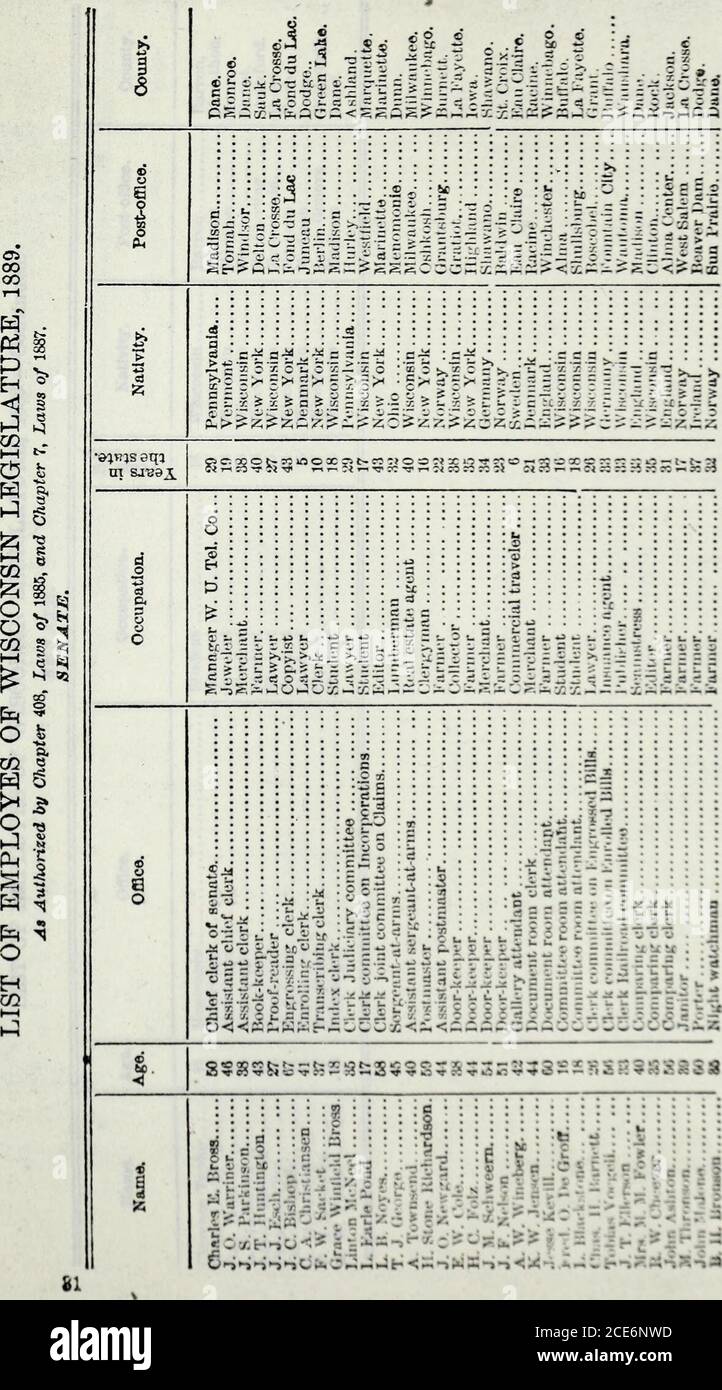 LIST OF EMPLOYES OF WISCONSIN LEGISLATURE, 1889.
As Authorized by Chapter 408, Laws of 1885, and Chapter 7, Laws of 1887.
SENATE.
Name. Age. Office. Occupation. Years in the state. Nativity. Post-office. County.
Charles E. Bross 50 Chief clerk of senate Manager W. U. Tel. Co 29 Pennsylvania Madison Dane.
J. O. Warriner 46 Assistant chief clerk Jeweler 19 Vermont Tomah Monroe.
J. S. Parkinson 38 Assistant clerk Merchant 38 Wisconsin Windsor Dane.
J. T. Huntington 43 Book-keeper Farmer 40 New York Delton Sauk.
J. J. Esch 27 Proof-reader Lawyer 27 Wisconsin La Crosse La Crosse.
J. C. Bishop 67 Engrossing clerk Copyist 43 New York Fond du Lac Fond du Lac.
C. A. Christiansen 41 Enrolling clerk Lawyer 5 Denmark Juneau Dodge.
F. W. Sacket 37 Transcribing clerk Clerk 10 New York Berlin Green Lake.
Grace Winfield Bross 18 Index clerk Student 18 Wisconsin Madison Dane.
Linton McNeel 35 Clerk Judiciary committee Lawyer 29 Pennsylvania Hurley Ashland.
L. Earle Pond 17 Clerk committee on Incorporations Student 17 Wisconsin Westfield Marquette.
L. B. Noyes 58 Clerk joint committee on Claims Editor 43 New York Marinette Marinette.
T. J. George 45 Sergeant-at-arms Lumberman 32 Ohio Menomonie Dunn.
A. Townsend 40 Assistant sergeant-at-arms Real estate agent 40 Wisconsin Milwaukee Milwaukee.
H. Stone Richardson 59 Postmaster Clergyman 16 New York Oshkosh Winnebago.
J. O. Newgard 44 Assistant postmaster Farmer 22 Norway Grantsburg Burnett.
E. W. Cole 38 Door-keeper Collector 38 Wisconsin Gratiot La Fayette.
H. C. Folz 44 Door-keeper Farmer 35 New York Highland Iowa.
J. M. Schweern 54 Door-keeper Merchant 34 Germany Shawano Shawano.
J. F. Nelson 51 Door-keeper Farmer 23 Norway Baldwin St. Croix.
A. W. Wineberg 42 Gallery attendant Commercial traveler 6 Sweden Eau Claire Eau Claire.
K. W. Jensen 44 Document room clerk Merchant 21 Denmark Racine Racine.
Jesse Kevill 60 Document room attendant Farmer 33 England Winchester Winnebago.
Fred. O. De Groff 16 Committee room attendant Student 16 Wisconsin Alma Buffalo.
L. Blackstone 18 Committee room attendant Student 18 Wisconsin Shullsburg La Fayette.
Chas. H. Barnett 26 Clerk committee on Engrossed Bills Lawyer 26 Wisconsin Boscobel Grant.
Tobias Voegeli 56 Clerk committee on Enrolled Bills Insurance agent 33 Germany Fountain City Buffalo
J. T. Ellerson 33 Clerk Railroad committee Publisher 33 Wisconsin Wautoma Waushara.
Mrs. M. M. Fowler 40 Comparing clerk Seamstress 33 England Madison Dane.
R. W. Cheever 35 Comparing clerk Editor 35 Wisconsin Clinton Rock.
John Ashton 56 Comparing clerk Farmer 31 England Alma Center Jackson.
M Thronson 39 Janitor Farmer 17 Norway West Salem La Crosse.
John Malone 60 Porter Farmer 37 Ireland Beaver Dam Dodge.
B. H. Bronson 35 Night watchman Farmer 32 Norway Sun Prairie Dane,
31
alamy
Image ID: 2CE6NWD
www.alamy.com